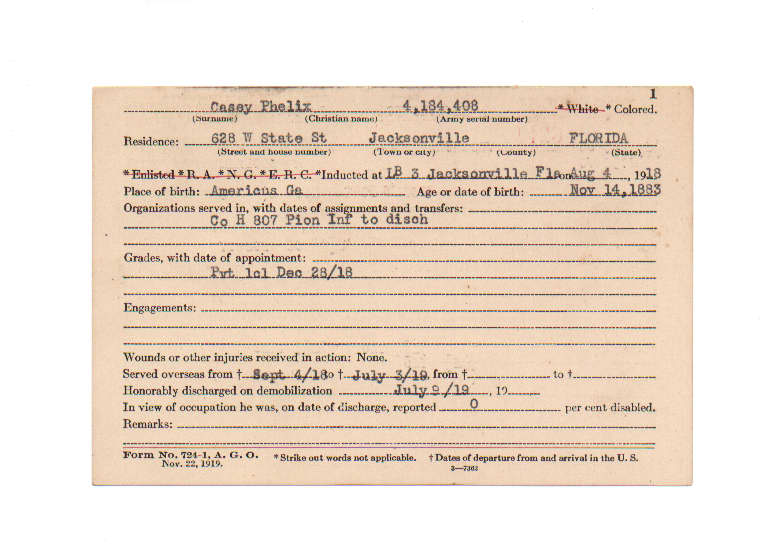 1
Casey Phelix 4,184,408 *White * Colored.
(Surname) (Christian name) (Army serial number)
Residence: 628 W State St Jacksonville FLORIDA
(Street and house number) (Town or city) (County) (State)
*Enlisted *R. A. *N. G. *E. R. C. *Inducted at LB 3 Jacksonville Fla on Aug 4, 1918
Place of birth: Americus Ga Age or date of birth: Nov 14,1883
Organizations served in, with dates of assignments and transfers:
Co H 807 Pion Inf to disch
Grades, with date of appointment:
Pvt 1cl Dec 28/18
Engagements:
Wounds or other injuries received in action: None.
Served overseas from † Sept 4/18 to † July 3/19, from † to †
Honorably discharged on demobilization July 9/19, 19
In view of occupation he was, on date of discharge, reported 0 per cent disabled.
Remarks:
Form No. 724-1, A. G. O. *Strike out words not applicable. †Dates of departure from and arrival in the U. S.
Nov. 22, 1919. 3—7362